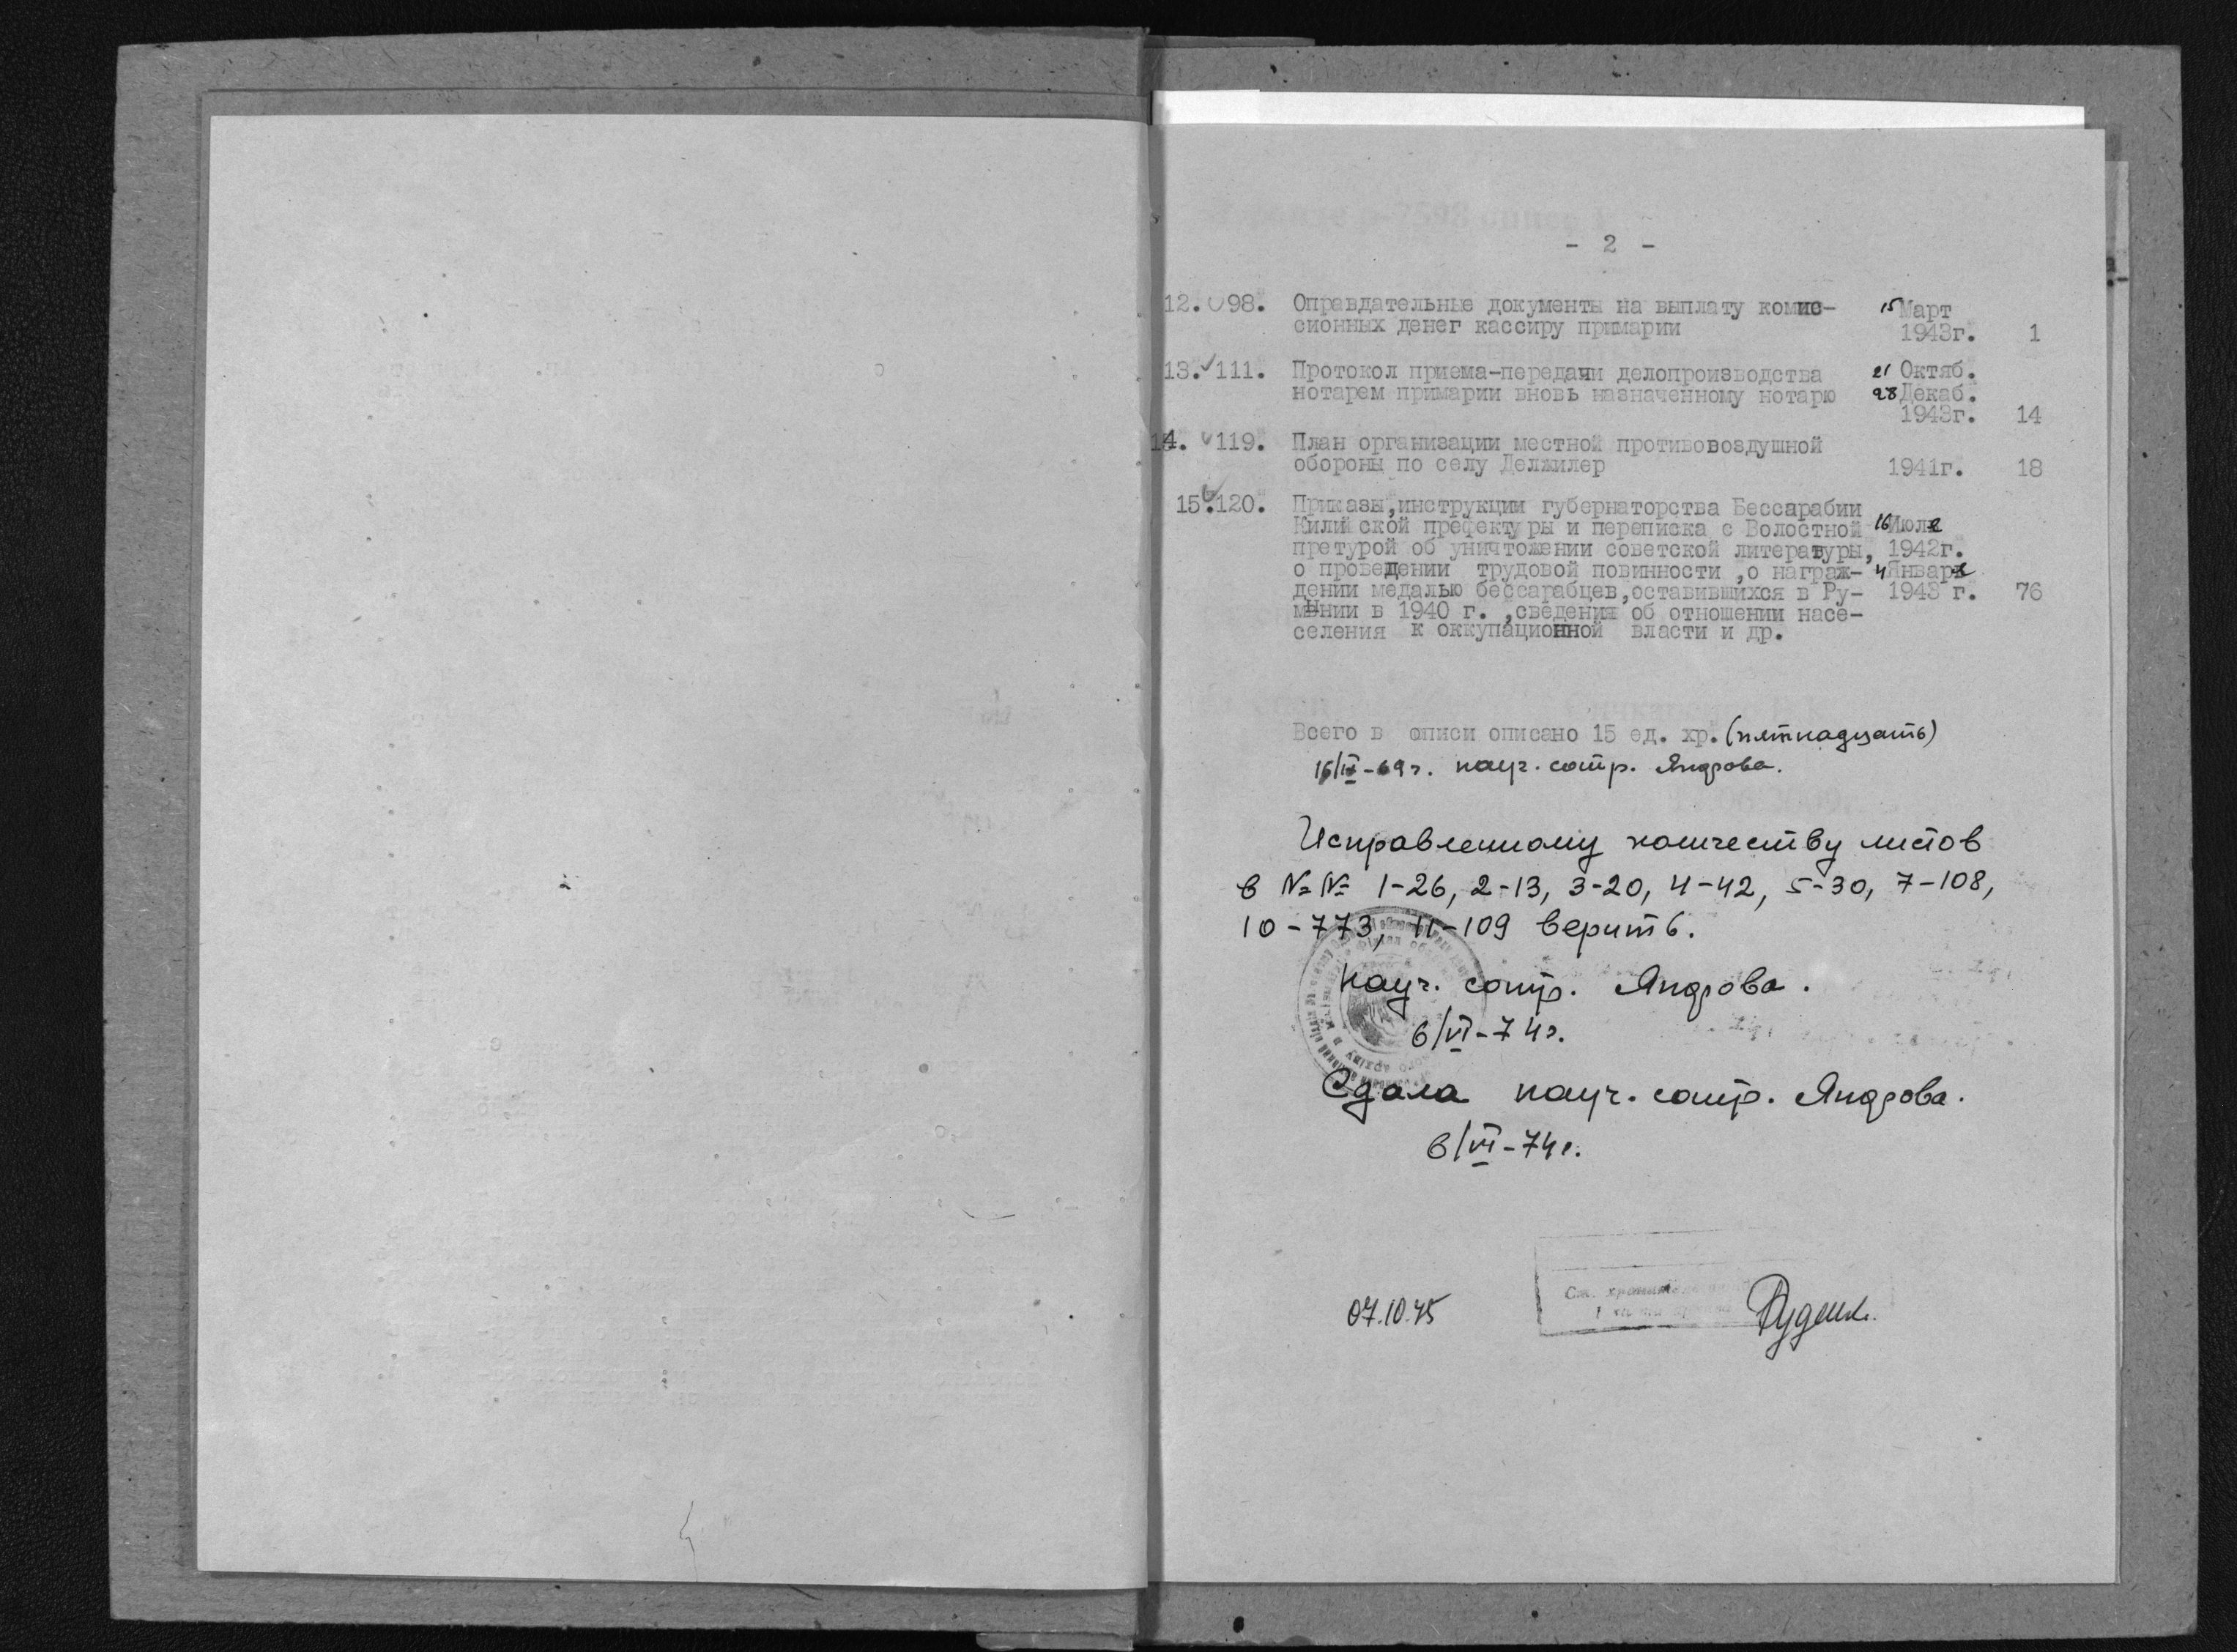 - 2 -
12. 98. Оправдательные документы на выплату комис- 15 Март
сионных денег кассиру примарии 1943г. 1
13. 111. Протокол приема-передачи делопроизводства 21 Октяб.
нотарем примарии вновь назначенному нотарю 28 Декаб.
1943г. 14
14. 119. План организации местной противовоздушной
обороны по селу Делжилер 1941г. 18
15. 120. Приказы,инструкции губернаторства Бессарабии
Килийской префектуры и переписка с Волостной 16 Июля
претурой об уничтожении советской литературы, 1942г.
о проведении трудовой повинности ,о награж- 4 Января
дении медалью бессарабцев,оставившихся в Ру- 1943 г. 76
мынии в 1940 г. ,сведения об отношении насе-
селения к оккупационной власти и др.
Всего в описи описано 15 ед. хр. (пятнадцать)
науч. сотр. Яндрова.
Исправленному количеству листов
в №№ 1-26, 2-13, 3-20, 4-42, 5-30, 7-108,
10-773, 11-109 верить.
Науч. сотр. Яндрова.
6/VI-74г.
Сдала науч. сотр. Яндрова.
6/VI-74г.
Ст. хранитель